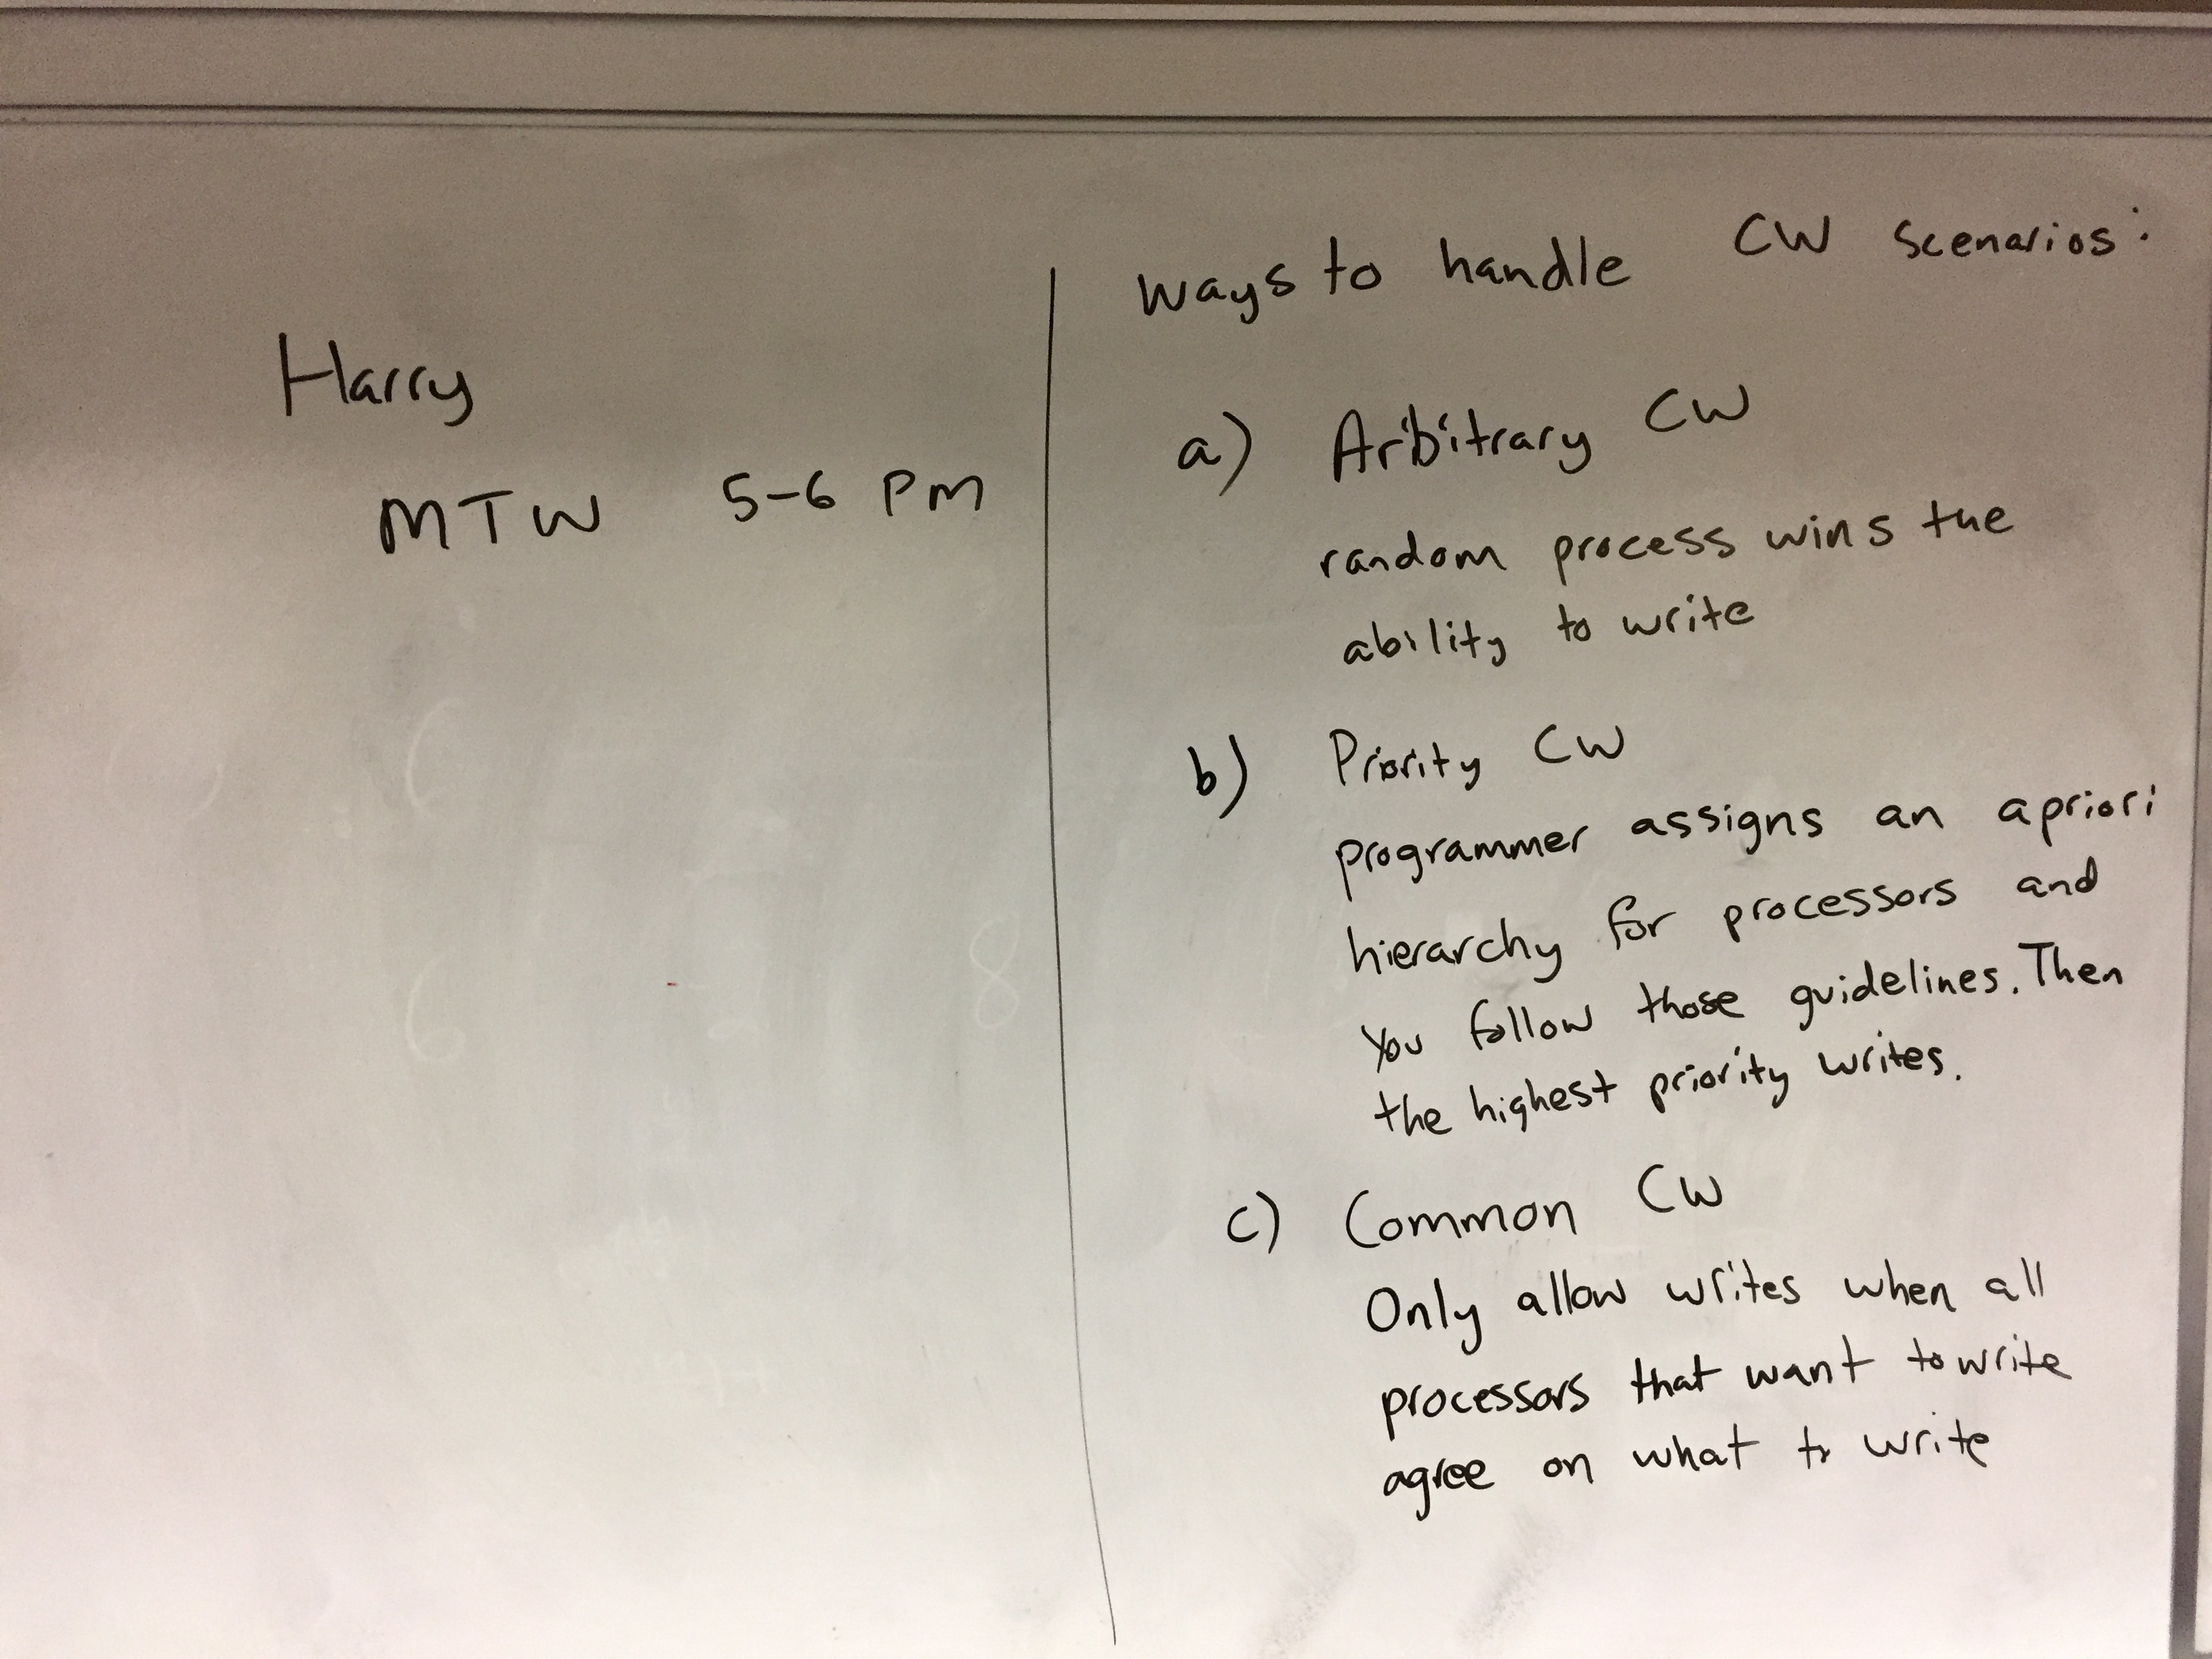 Harry
MTW 5-6 PM
ways to handle CW scenarios:
a) Arbitrary CW
random process wins the
ability to write
b) Priority CW
programmer assigns an apriori
hierarchy for processors and
you follow those guidelines. Then
the highest priority writes.
c) Common CW
Only allow writes when all
processors that want to write
agree on what to write